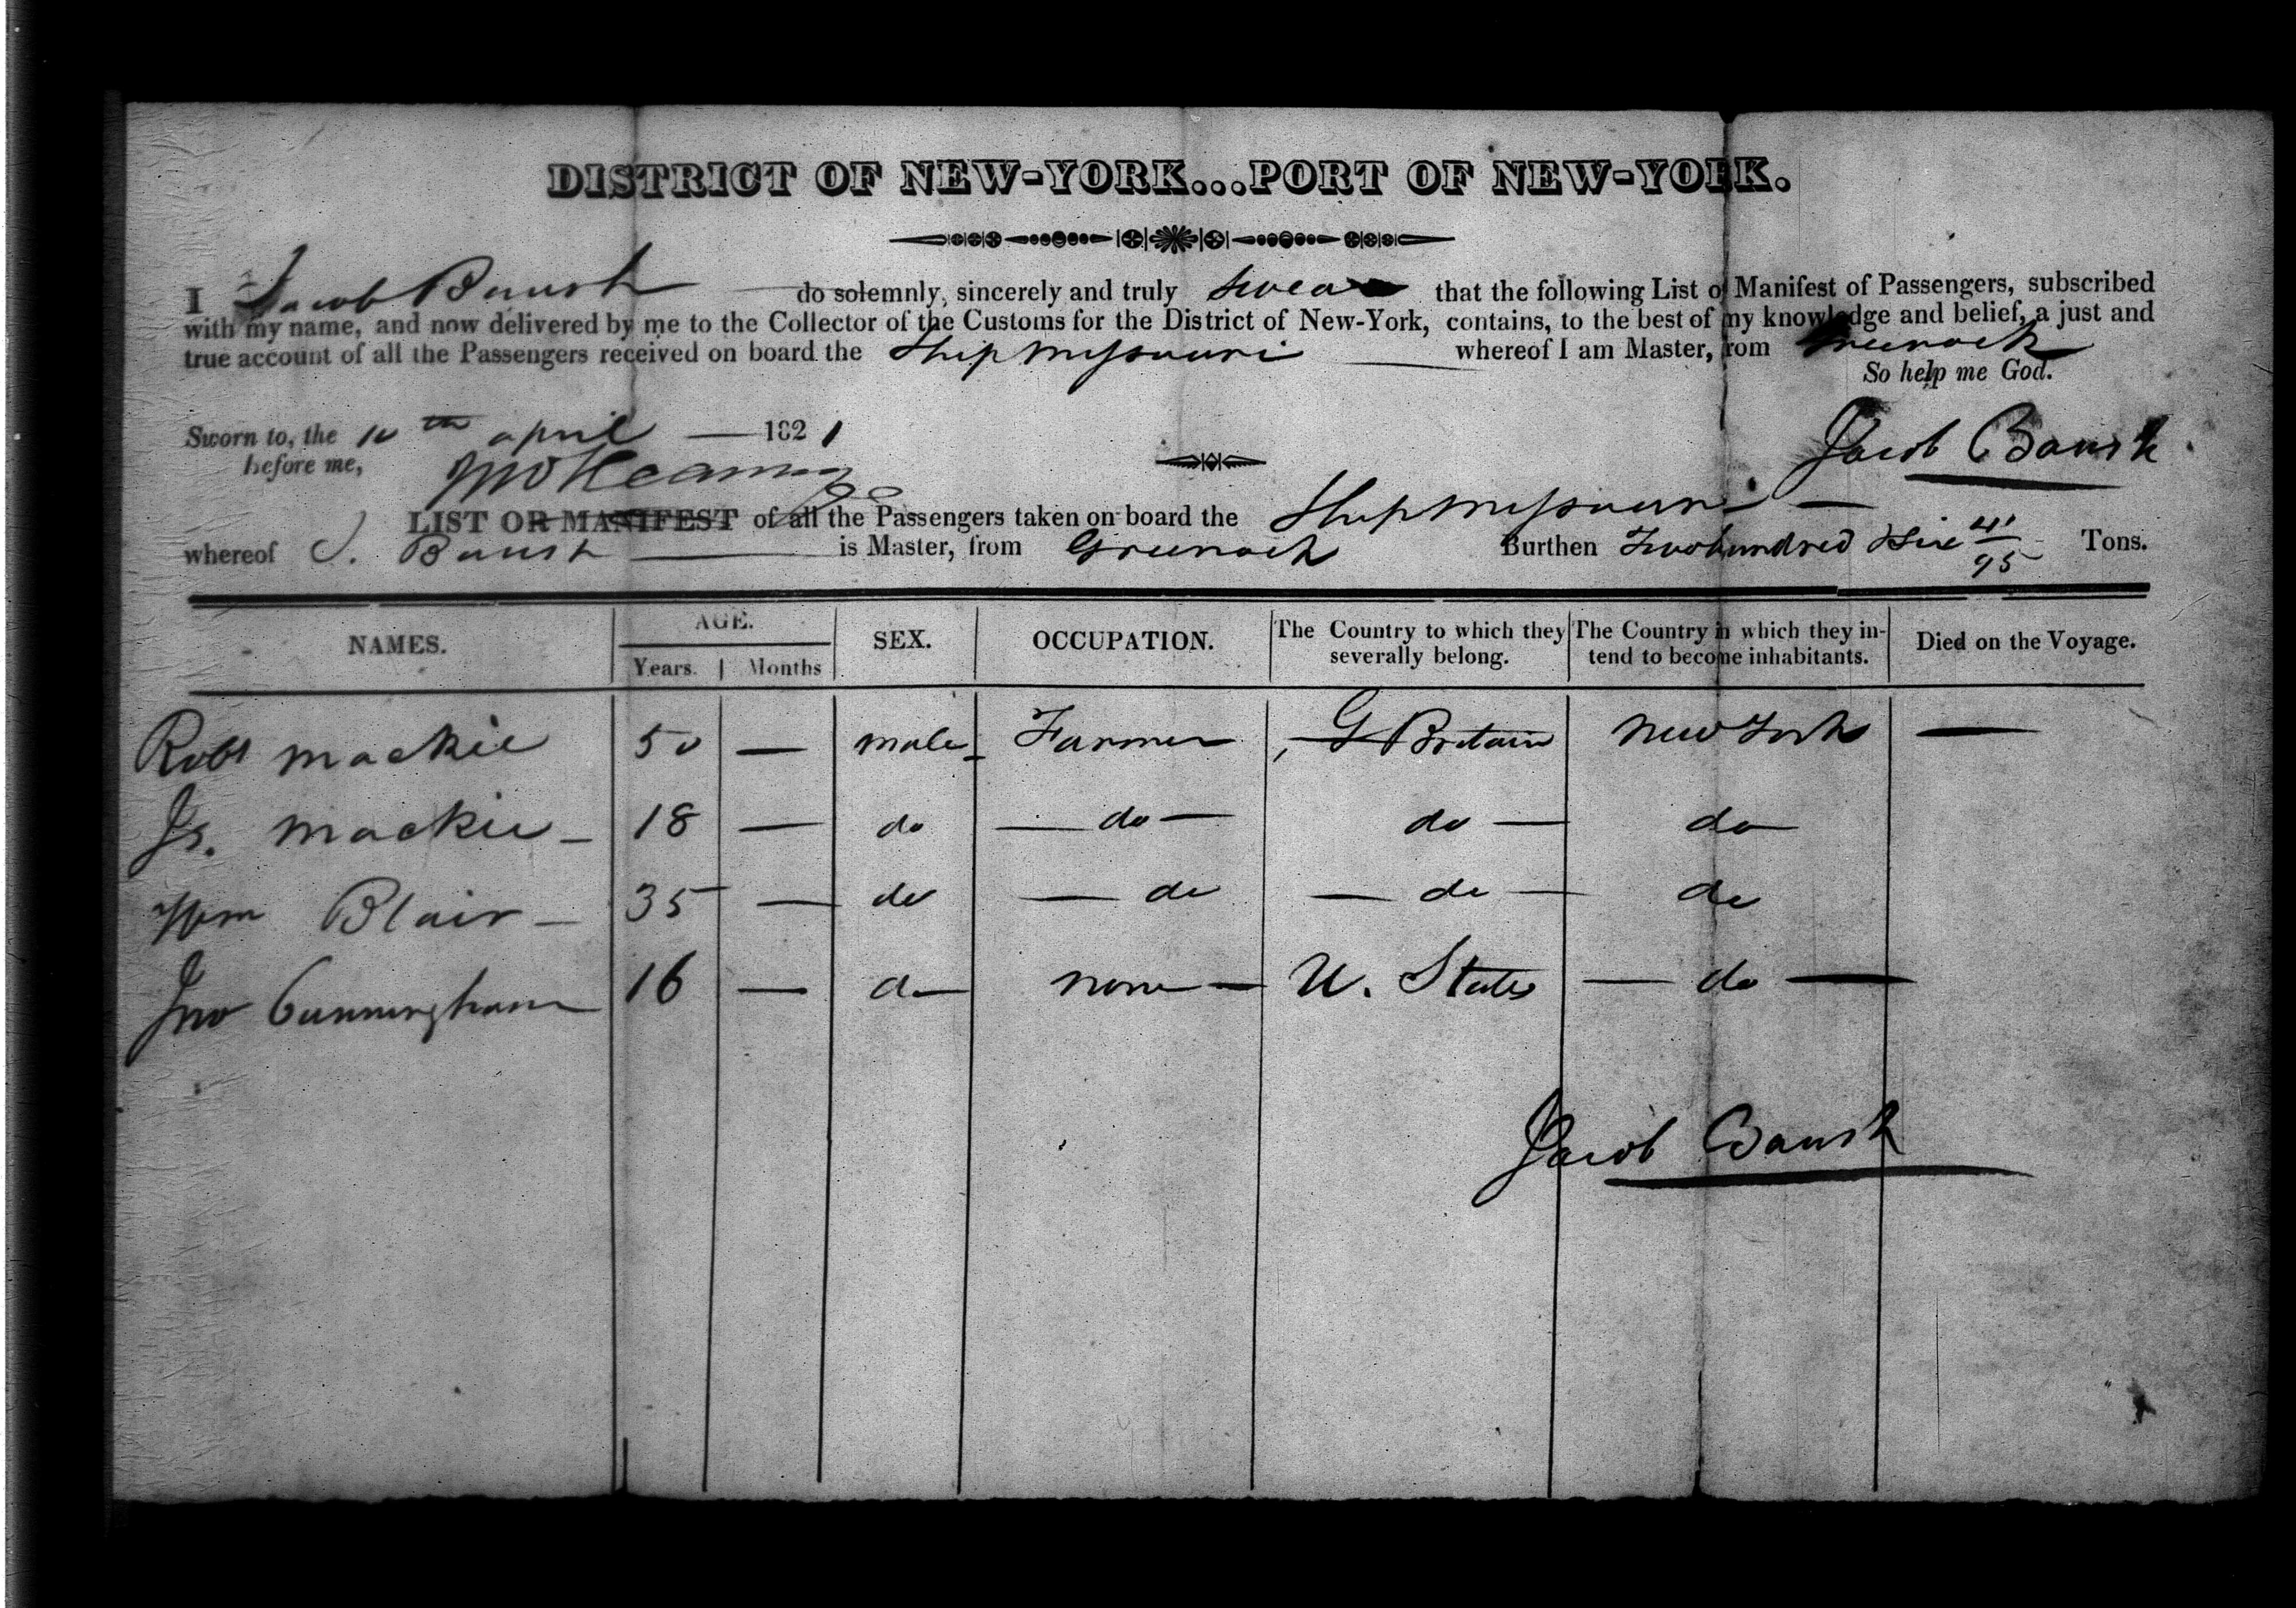 DISTRICT OF NEW-YORK...PORT OF NEW-YORK.
I Jacob Baush do solemnly, sincerely and truly swear that the following List or Manifest of Passengers, subscribed
with my name, and now delivered by me to the Collector of the Customs for the District of New-York, contains, to the best of my knowledge and belief, a just and
true account of all the Passengers received on board the Ship Missouri whereof I am Master, from Greenock
So help me God.
Sworn to, the 10th april 1821
before me,
Jacob Baush
LIST OR MANIFEST of all the Passengers taken on board the Ship Missouri
whereof J. Baush is Master, from Greenock Burthen Two hundred Six 41/95 Tons.
NAMES. AGE. Years. Months SEX. OCCUPATION. The Country to which they severally belong. The Country in which they intend to become inhabitants. Died on the Voyage.
Robt Mackie 50 — male Farmer G Britain New York —
Js. Mackie — 18 — do — do — do — do
Wm Blair — 35 — do — do — do — do
Jno Cunningham 16 — do none — U. States — do —
Jacob Baush